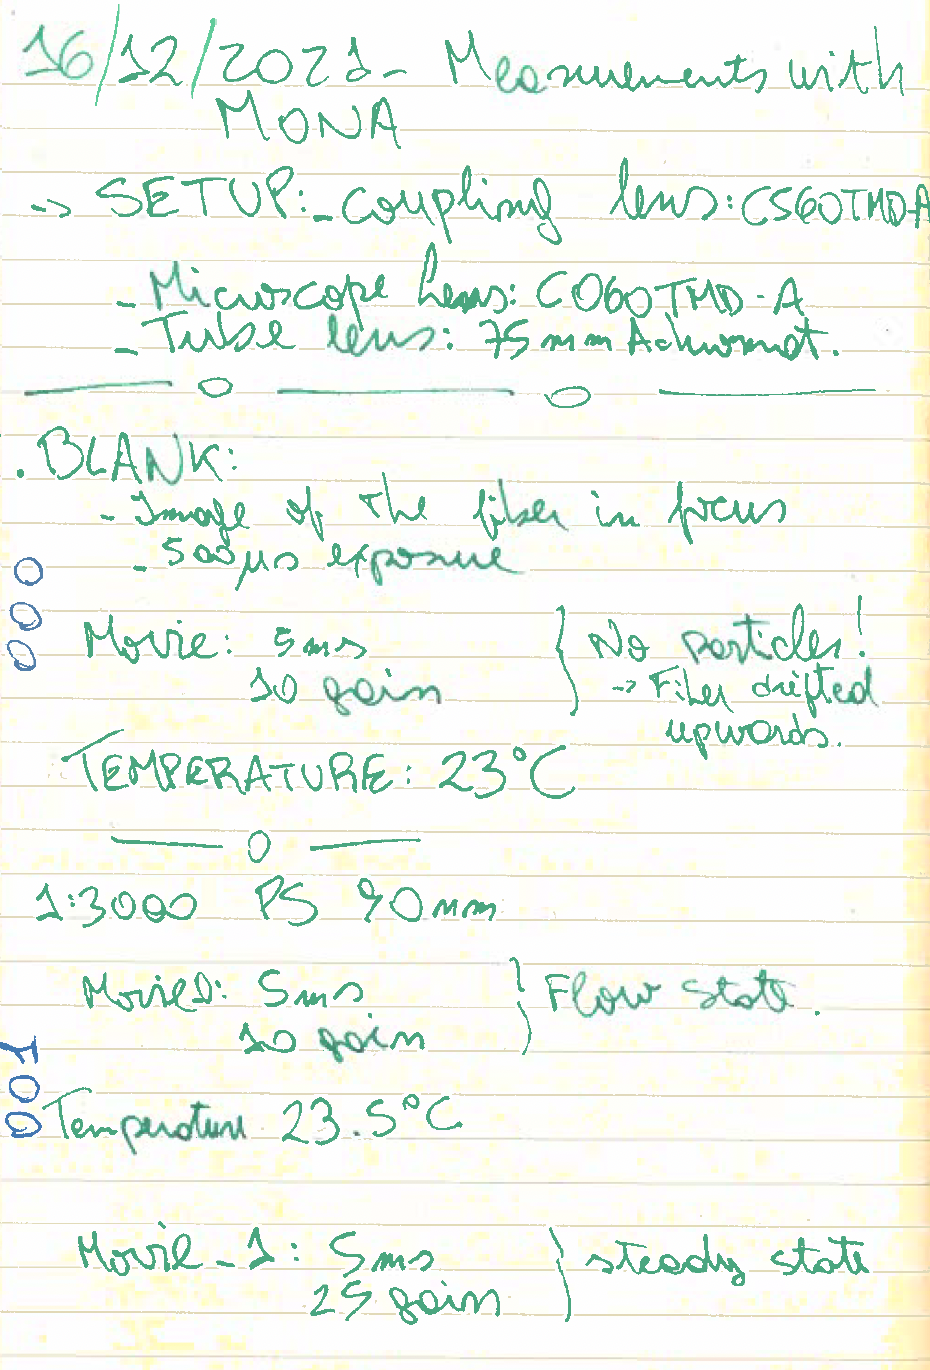 16/12/2021 - Measurements with
MONA
-> SETUP: - Coupling lens: CS60TMD-A
- Microscope Lens: CO60TMD-A
- Tube lens: 75mm Achromat.
. BLANK:
- Image of the fiber in focus
- 500μs exposure
000
Movie: 5ms
10 gain
No particles!
-> Fiber drifted
upwards.
TEMPERATURE: 23°C
1:3000 PS 90nm
Movie: 5ms
10 gain
Flow state.
001
Temperature 23.5°C
Movie-1: 5ms
25 gain
steady state